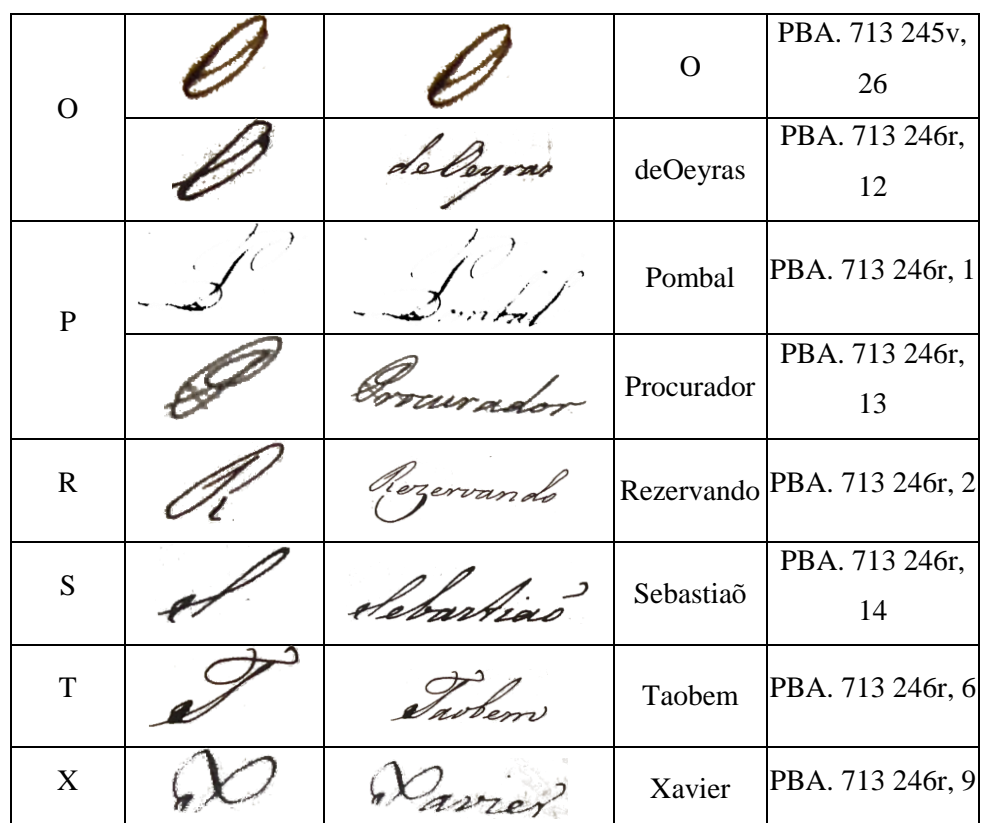 O O O O PBA. 713 245v,
26
O deOeyras deOeyras PBA. 713 246r,
12
P P Pombal Pombal PBA. 713 246r, 1
P Procurador Procurador PBA. 713 246r,
13
R R Rezervando Rezervando PBA. 713 246r, 2
S S Sebastiaõ Sebastiaõ PBA. 713 246r,
14
T T Taobem Taobem PBA. 713 246r, 6
X X Xavier Xavier PBA. 713 246r, 9